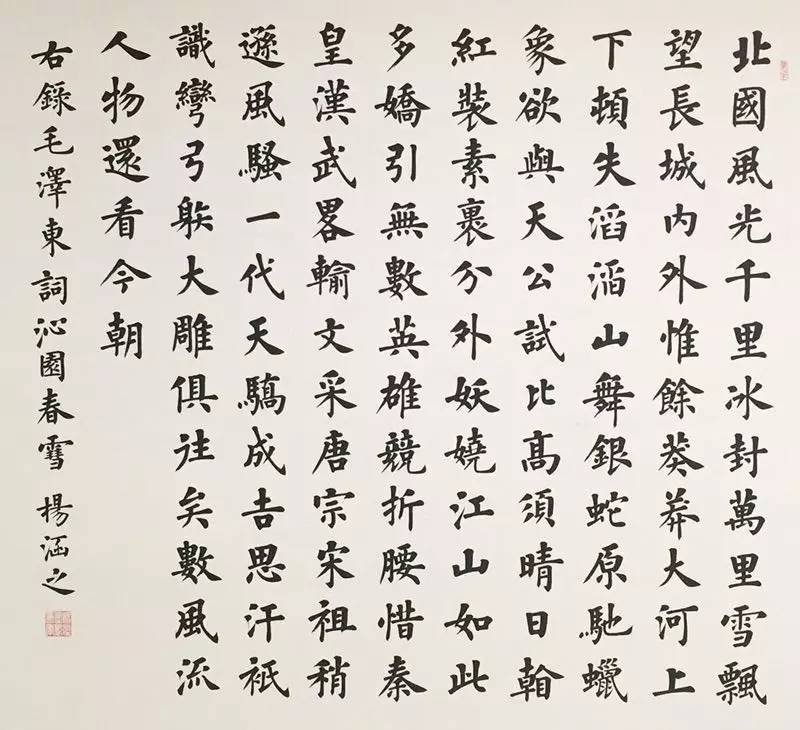 北國風光千里冰封萬里雪飄
望長城内外惟餘莽莽大河上
下頓失滔滔山舞銀蛇原馳蠟
象欲與天公試比高須晴日
紅裝素裹分外妖嬈江山如此
多嬌引無數英雄競折腰惜秦
皇漢武畧輸文采唐宗宋祖稍
遜風騷一代天驕成吉思汗衹
識彎弓䠶大雕俱往矣數風流
人物還看今朝
右錄毛澤東詞沁園春雪 楊涵之